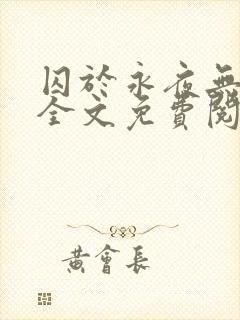 囚於永夜無
全文免費閱
黃會長